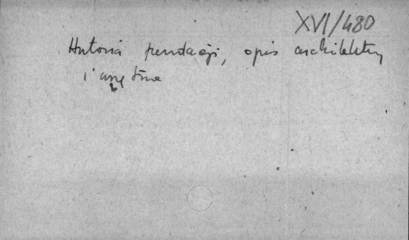 XVI/480
Historia fundacji, opis architektury
i